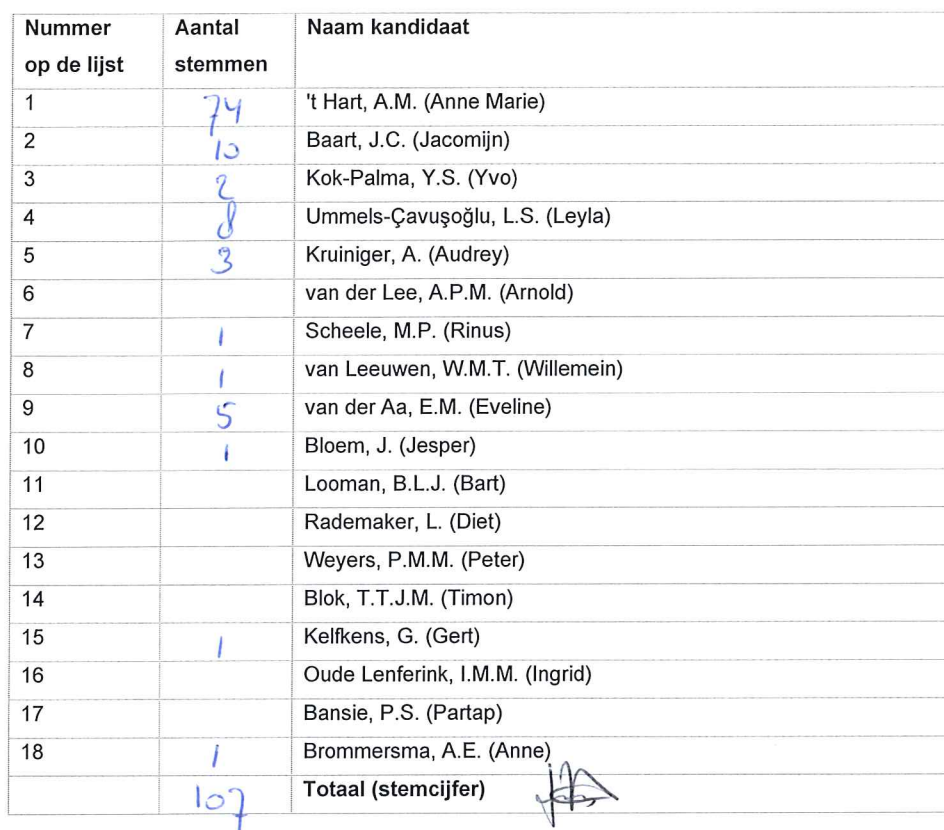 Nummer op de lijst Aantal stemmen Naam kandidaat
1 74 't Hart, A.M. (Anne Marie)
2 10 Baart, J.C. (Jacomijn)
3 2 Kok-Palma, Y.S. (Yvo)
4 8 Ummels-Çavuşoğlu, L.S. (Leyla)
5 3 Kruiniger, A. (Audrey)
6 van der Lee, A.P.M. (Arnold)
7 1 Scheele, M.P. (Rinus)
8 1 van Leeuwen, W.M.T. (Willemein)
9 5 van der Aa, E.M. (Eveline)
10 1 Bloem, J. (Jesper)
11 Looman, B.L.J. (Bart)
12 Rademaker, L. (Diet)
13 Weyers, P.M.M. (Peter)
14 Blok, T.T.J.M. (Timon)
15 1 Kelfkens, G. (Gert)
16 Oude Lenferink, I.M.M. (Ingrid)
17 Bansie, P.S. (Partap)
18 1 Brommersma, A.E. (Anne)
107 Totaal (stemcijfer)